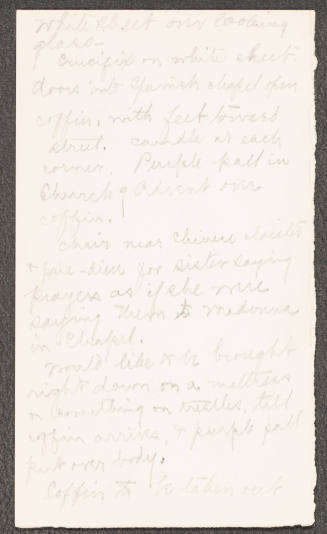 white sheet over looking
glass —
Crucifix on white sheet.
doors into Spanish chapel open
coffin, with feet toward
street. candle at each
corner. Purple pall in
Church of Advent over
coffin.
Chair near Chinese closet
& prie-dieu for sister saying
prayers as if she were
saying them to Madonna
in Chapel.
Would like to be brought
right down on a mattress
or something on trestles, till
coffin arrives, & purple pall
put over body.
Coffin to be taken out